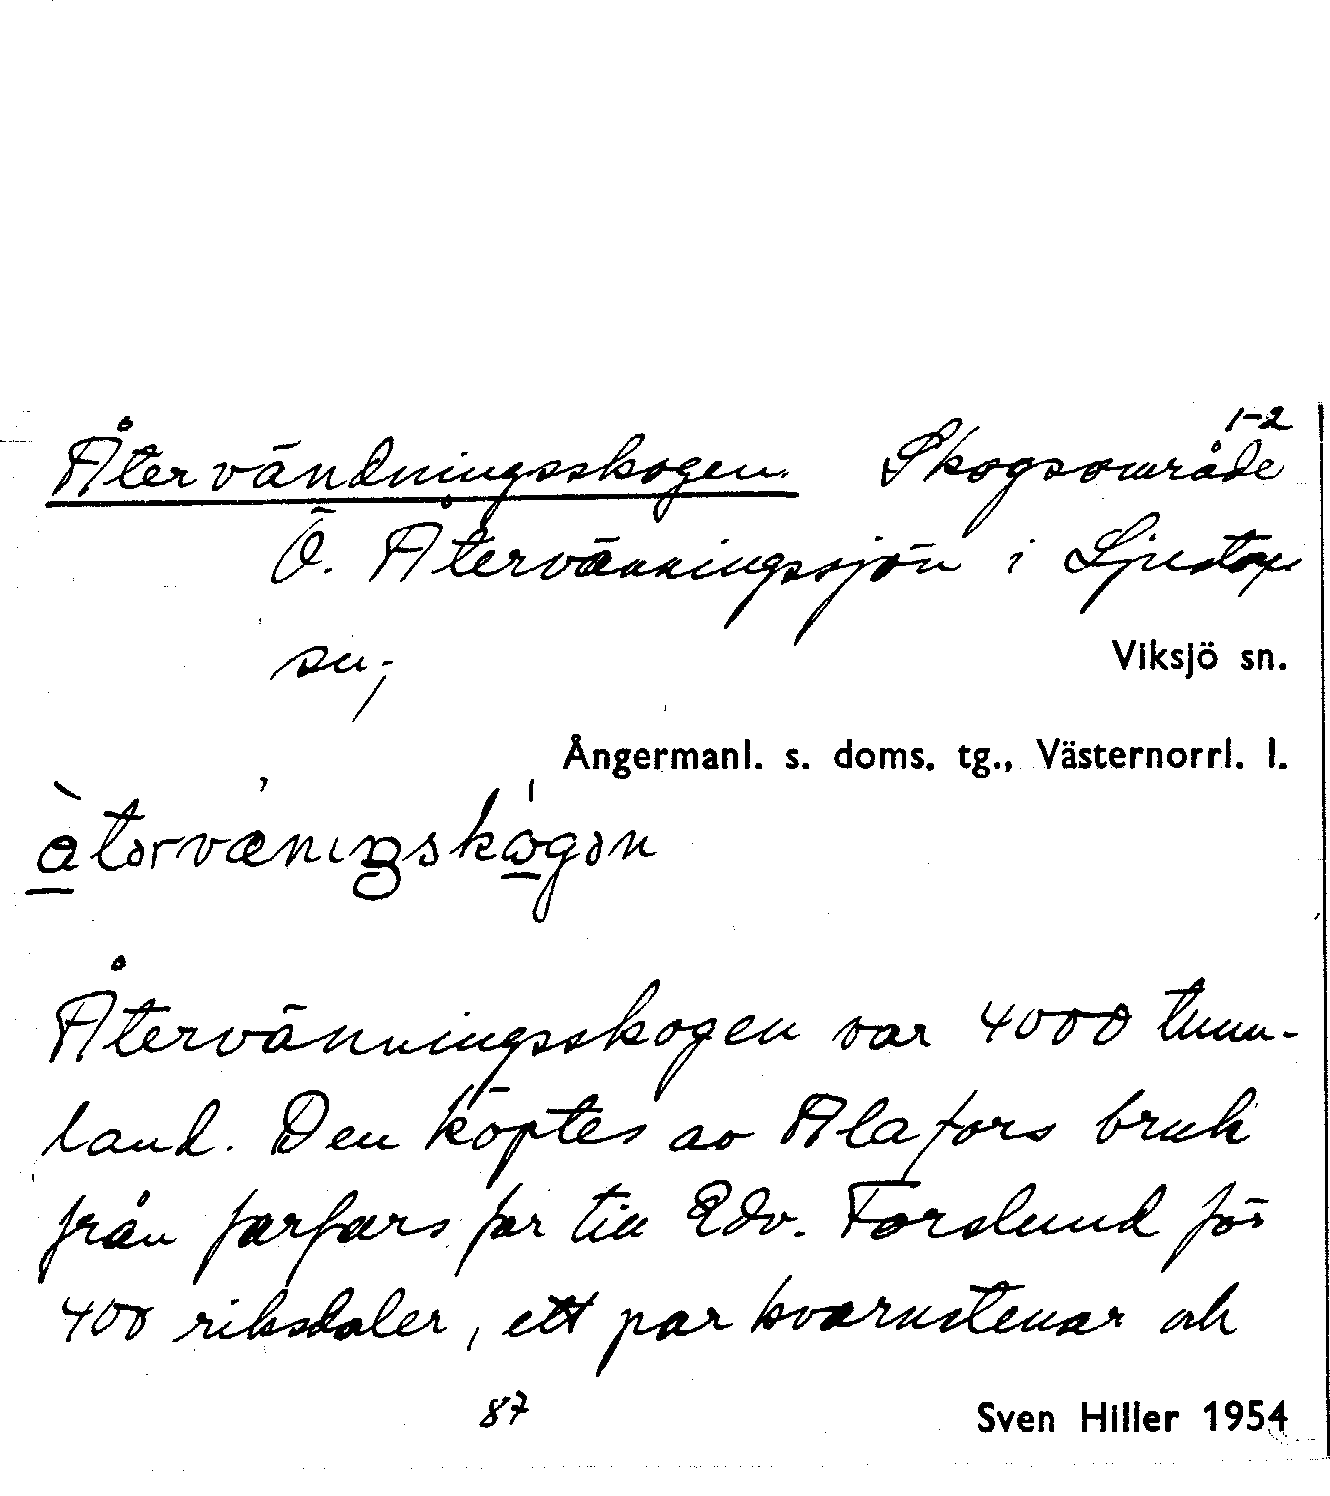 1-2
Återvändningsskogen. Skogsområde
Ö. Återvänningssjön i Ljustorp
sn;
Viksjö sn.
Ångermanl. s. doms. tg., Västernorrl. l.
Återvänningsskogen var 4000 tunn-
land. Den köptes av Alafors bruk
från farfars far till Edv. Forslund för
400 riksdaler, ett par kvarnstenar och
87
Sven Hiller 1954